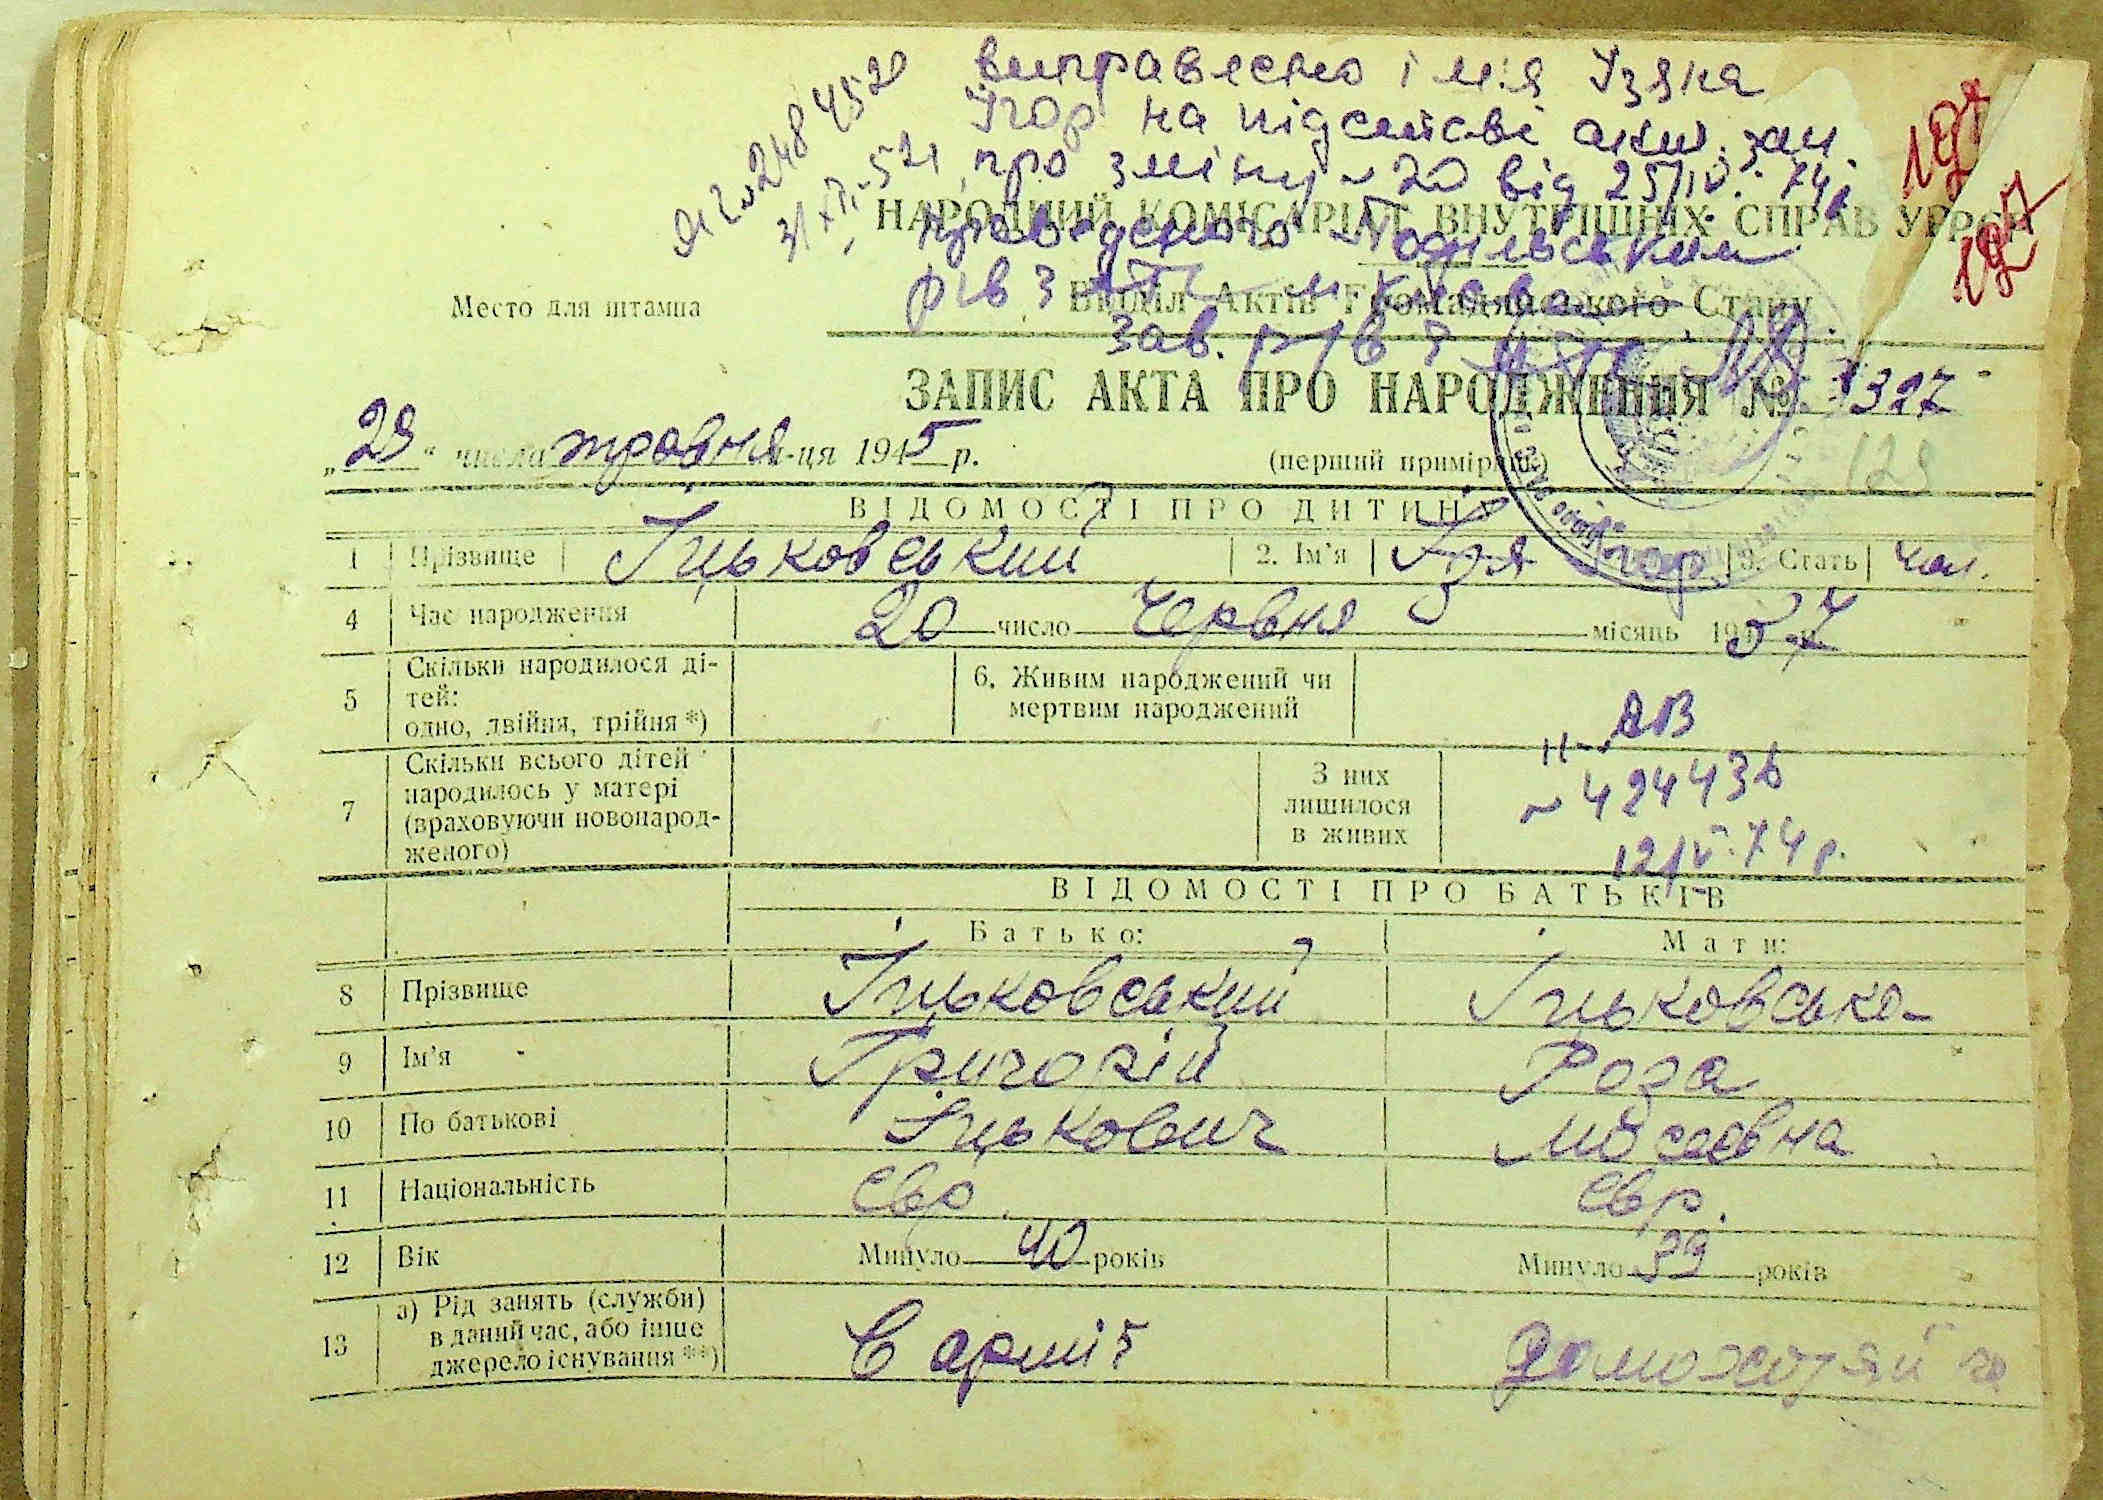 виправлено ім'я Ізяка
Ігор на підставі акт. зап.
про зміну № 20 від 25/IV. 74р
Подільським
зав. р/в
ЯГ № 248452
31 XII-52
197
197
НАРОДНИЙ КОМІСАРІАТ ВНУТРІШНІХ СПРАВ УРРСР
Место для штампа
Відділ Актів Громадянського Стану
ЗАПИС АКТА ПРО НАРОДЖЕННЯ № 1327
129
„29“ числа травня м-ця 1945 р.
(перший примірник)
ВІДОМОСТІ ПРО ДИТИНУ
1 Прізвище Іцьковський 2. Ім'я Ізя Ігор 3. Стать чол.
4 Час народження 20 число Червня місяць 19
5 Скільки народилося дітей: одно, двійня, трійня *) 6. Живим народжений чи мертвим народжений
АВ
№ 424436
12/V-74р.
7 Скільки всього дітей народилось у матері (враховуючи новонародженого) З них лишилося в живих
ВІДОМОСТІ ПРО БАТЬКІВ
Батько: Мати:
8 Прізвище Іцьковський Іцьковська
9 Ім'я Григорій Роза
10 По батькові Іцькович Мойсеєвна
11 Національність Євр. Євр.
12 Вік Минуло 40 років Минуло 39 років
13 а) Рід занять (служби) в даний час, або інше джерело існування **) В армії домохозяйка